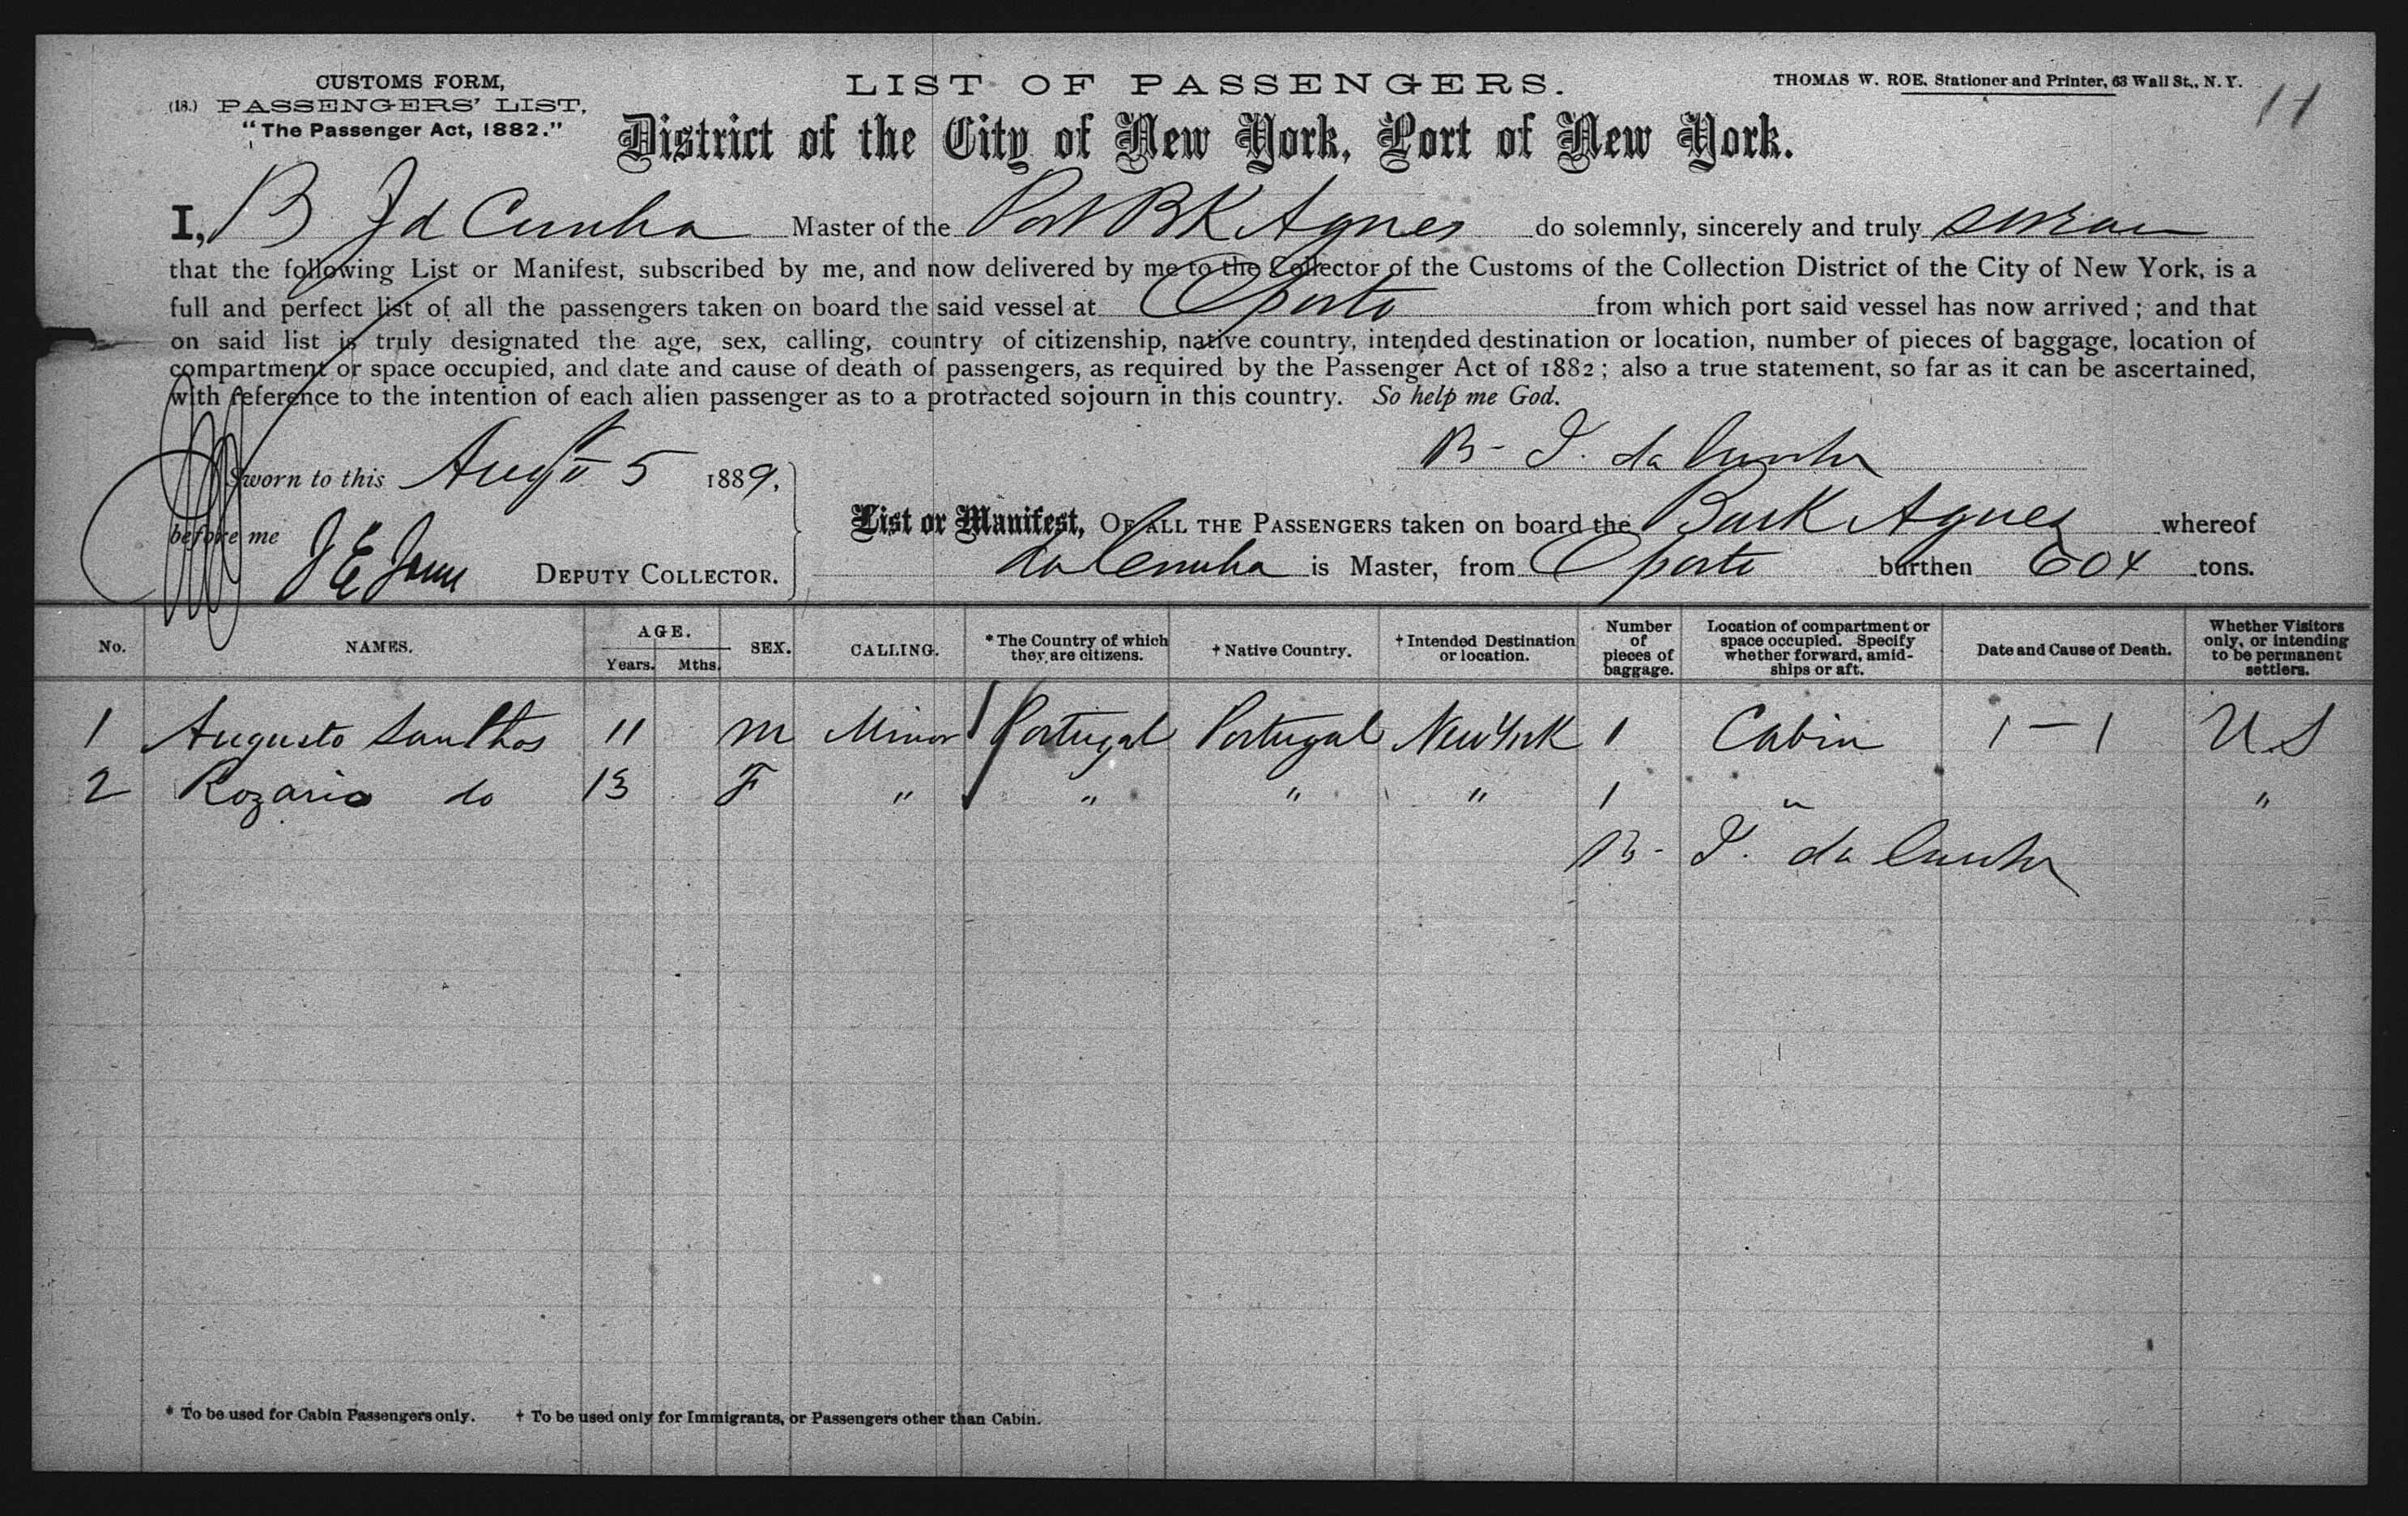 CUSTOMS FORM,
(18.) PASSENGERS' LIST,
"The Passenger Act, 1882."
LIST OF PASSENGERS.
THOMAS W. ROE, Stationer and Printer, 63 Wall St., N. Y.
11
District of the City of New York, Port of New York.
I, B J d Cunha Master of the Port BK Agnes do solemnly, sincerely and truly swear
that the following List or Manifest, subscribed by me, and now delivered by me to the Collector of the Customs of the Collection District of the City of New York, is a
full and perfect list of all the passengers taken on board the said vessel at Oporto from which port said vessel has now arrived; and that
on said list is truly designated the age, sex, calling, country of citizenship, native country, intended destination or location, number of pieces of baggage, location of
compartment or space occupied, and date and cause of death of passengers, as required by the Passenger Act of 1882; also a true statement, so far as it can be ascertained,
with reference to the intention of each alien passenger as to a protracted sojourn in this country. So help me God.
B - J. da Cunha
Sworn to this Augt 5 1889,
before me J E DEPUTY COLLECTOR.
List or Manifest, OF ALL THE PASSENGERS taken on board the Bark Agnes whereof
da Cunha is Master, from Oporto burthen 604 tons.
No. NAMES. AGE. Years. Mths. SEX. CALLING. * The Country of which they are citizens. † Native Country. † Intended Destination or location. Number of pieces of baggage. Location of compartment or space occupied. Specify whether forward, amidships or aft. Date and Cause of Death. Whether Visitors only, or intending to be permanent settlers.
1 Augusto Santhos 11 M Minor Portugal Portugal New York 1 Cabin 1 — 1 U S
2 Rozario do 13 F " " " " 1 " "
B - J. da Cunha
* To be used for Cabin Passengers only. † To be used only for Immigrants, or Passengers other than Cabin.